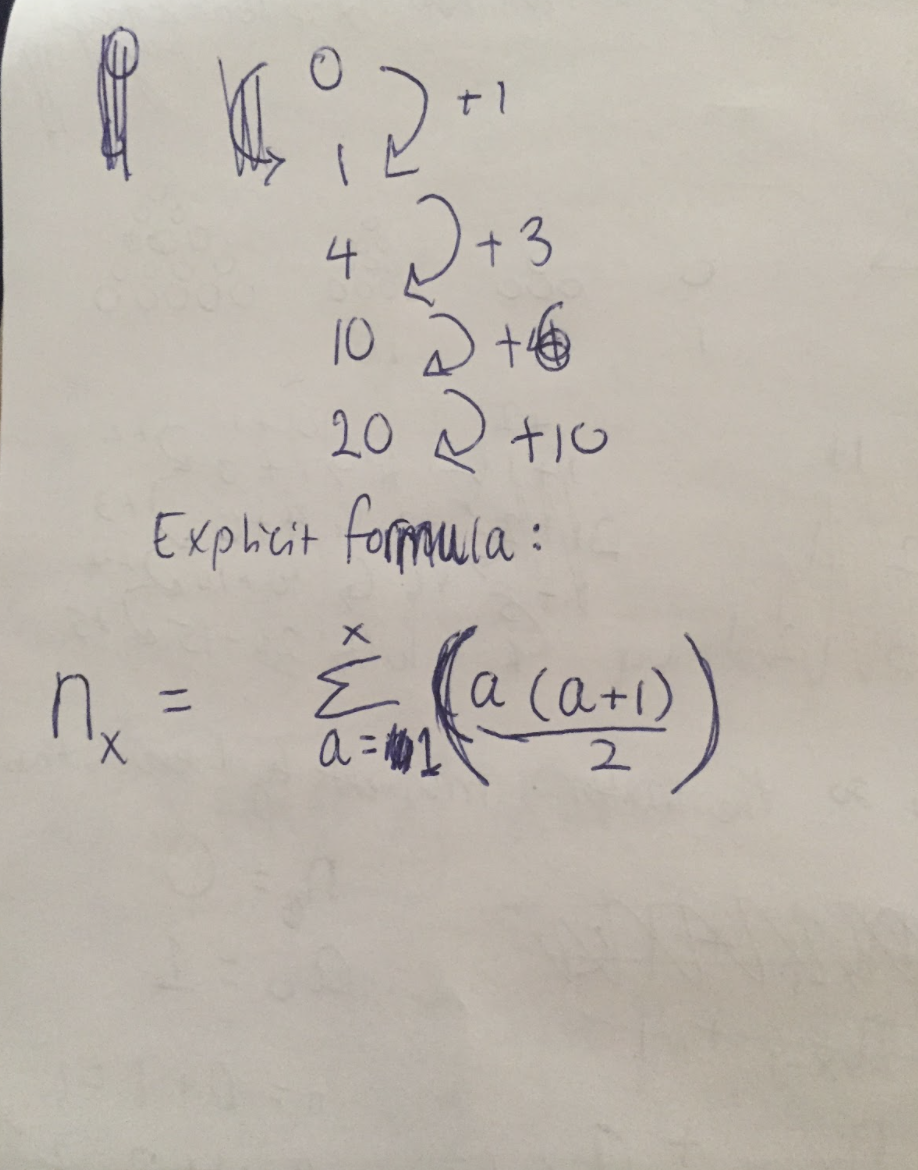 0 +1
1
4 +3
10 +6
20 +10
Explicit formula:
n_x = x ∑ a=1 (a(a+1)/2)